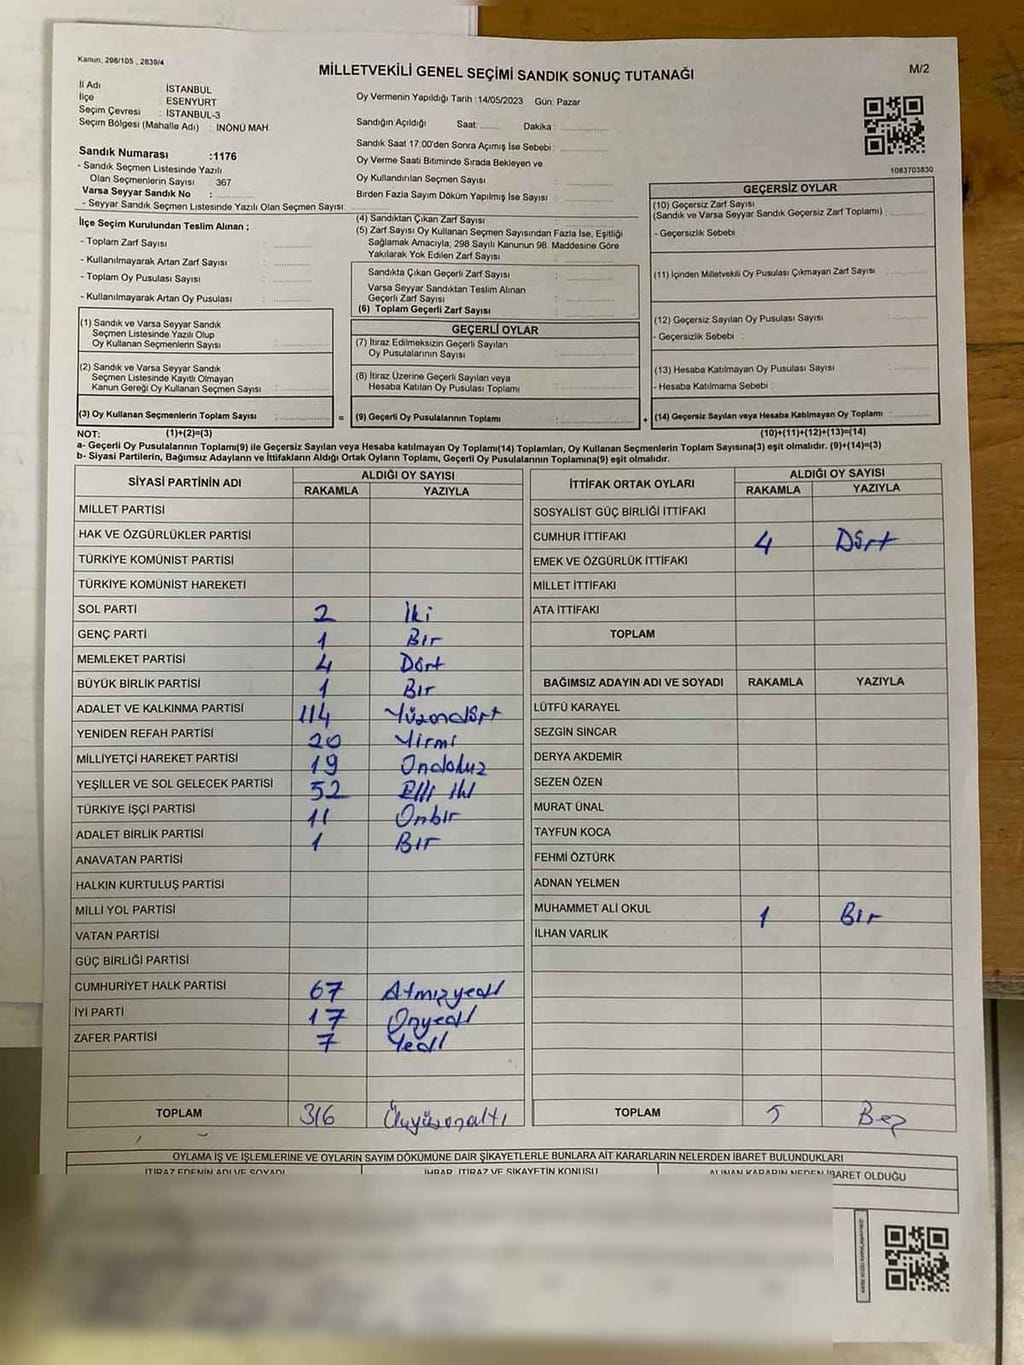 Kanun, 298/105 , 2839/4
MİLLETVEKİLİ GENEL SEÇİMİ SANDIK SONUÇ TUTANAĞI
M/2
İl Adı : İSTANBUL
İlçe : ESENYURT
Seçim Çevresi : İSTANBUL-3
Seçim Bölgesi (Mahalle Adı) : İNÖNÜ MAH
Sandık Numarası :1176
- Sandık Seçmen Listesinde Yazılı
Olan Seçmenlerin Sayısı : 367
Varsa Seyyar Sandık No :
- Seyyar Sandık Seçmen Listesinde Yazılı Olan Seçmen Sayısı:
Oy Vermenin Yapıldığı Tarih :14/05/2023 Gün: Pazar
Sandığın Açıldığı Saat: Dakika :
Sandık Saat 17:00'den Sonra Açımış İse Sebebi :
Oy Verme Saati Bitiminde Sırada Bekleyen ve
Oy Kullandırılan Seçmen Sayısı :
Birden Fazla Sayım Döküm Yapılmış İse Sayısı :
1083703830
İlçe Seçim Kurulundan Teslim Alınan ;
- Toplam Zarf Sayısı :
- Kullanılmayarak Artan Zarf Sayısı :
- Toplam Oy Pusulası Sayısı :
- Kullanılmayarak Artan Oy Pusulası :
(1) Sandık ve Varsa Seyyar Sandık
Seçmen Listesinde Yazılı Olup
Oy Kullanan Seçmenlerin Sayısı :
(2) Sandık ve Varsa Seyyar Sandık
Seçmen Listesinde Kayıtlı Olmayan
Kanun Gereği Oy Kullanan Seçmen Sayısı :
(3) Oy Kullanan Seçmenlerin Toplam Sayısı :
(4) Sandıktan Çıkan Zarf Sayısı :
(5) Zarf Sayısı Oy Kullanan Seçmen Sayısından Fazla İse, Eşitliği
Sağlamak Amacıyla; 298 Sayılı Kanunun 98. Maddesine Göre
Yakılarak Yok Edilen Zarf Sayısı :
Sandıkta Çıkan Geçerli Zarf Sayısı :
Varsa Seyyar Sandıktan Teslim Alınan
Geçerli Zarf Sayısı :
(6) Toplam Geçerli Zarf Sayısı :
GEÇERLİ OYLAR
(7) İtiraz Edilmeksizin Geçerli Sayılan
Oy Pusulalarının Sayısı :
(8) İtiraz Üzerine Geçerli Sayılan veya
Hesaba Katılan Oy Pusulası Toplamı :
= (9) Geçerli Oy Pusulalarının Toplamı :
GEÇERSİZ OYLAR
(10) Geçersiz Zarf Sayısı
(Sandık ve Varsa Seyyar Sandık Geçersiz Zarf Toplamı) :
- Geçersizlik Sebebi :
(11) İçinden Milletvekili Oy Pusulası Çıkmayan Zarf Sayısı :
(12) Geçersiz Sayılan Oy Pusulası Sayısı :
- Geçersizlik Sebebi :
(13) Hesaba Katılmayan Oy Pusulası Sayısı :
- Hesaba Katılmama Sebebi :
+ (14) Geçersiz Sayılan veya Hesaba Katılmayan Oy Toplamı :
NOT: (1)+(2)=(3) (10)+(11)+(12)+(13)=(14)
a- Geçerli Oy Pusulalarının Toplamı(9) ile Geçersiz Sayılan veya Hesaba katılmayan Oy Toplamı(14) Toplamları, Oy Kullanan Seçmenlerin Toplam Sayısına(3) eşit olmalıdır. (9)+(14)=(3)
b- Siyasi Partilerin, Bağımsız Adayların ve İttifakların Aldığı Ortak Oyların Toplamı, Geçerli Oy Pusulalarının Toplamına(9) eşit olmalıdır.
SİYASİ PARTİNİN ADI ALDIĞI OY SAYISI
RAKAMLA YAZIYLA
MİLLET PARTİSİ
HAK VE ÖZGÜRLÜKLER PARTİSİ
TÜRKİYE KOMÜNİST PARTİSİ
TÜRKİYE KOMÜNİST HAREKETİ
SOL PARTİ 2 İki
GENÇ PARTİ 1 Bir
MEMLEKET PARTİSİ 4 Dört
BÜYÜK BİRLİK PARTİSİ 1 Bir
ADALET VE KALKINMA PARTİSİ 114 Yüzondört
YENİDEN REFAH PARTİSİ 20 Yirmi
MİLLİYETÇİ HAREKET PARTİSİ 19 Ondokuz
YEŞİLLER VE SOL GELECEK PARTİSİ 52 Elli iki
TÜRKİYE İŞÇİ PARTİSİ 11 Onbir
ADALET BİRLİK PARTİSİ 1 Bir
ANAVATAN PARTİSİ
HALKIN KURTULUŞ PARTİSİ
MİLLİ YOL PARTİSİ
VATAN PARTİSİ
GÜÇ BİRLİĞİ PARTİSİ
CUMHURİYET HALK PARTİSİ 67 Atmışyedi
İYİ PARTİ 17 Onyedi
ZAFER PARTİSİ 7 Yedi
TOPLAM 316 Üçyüzonaltı
İTTİFAK ORTAK OYLARI ALDIĞI OY SAYISI
RAKAMLA YAZIYLA
SOSYALİST GÜÇ BİRLİĞİ İTTİFAKI
CUMHUR İTTİFAKI 4 Dört
EMEK VE ÖZGÜRLÜK İTTİFAKI
MİLLET İTTİFAKI
ATA İTTİFAKI
TOPLAM
BAĞIMSIZ ADAYIN ADI VE SOYADI RAKAMLA YAZIYLA
LÜTFÜ KARAYEL
SEZGİN SİNCAR
DERYA AKDEMİR
SEZEN ÖZEN
MURAT ÜNAL
TAYFUN KOCA
FEHMİ ÖZTÜRK
ADNAN YELMEN
MUHAMMET ALİ OKUL 1 Bir
İLHAN VARLIK
TOPLAM 5 Beş
OYLAMA İŞ VE İŞLEMLERİNE VE OYLARIN SAYIM DÖKÜMÜNE DAİR ŞİKAYETLERLE BUNLARA AİT KARARLARIN NELERDEN İBARET BULUNDUKLARI
İTİRAZ EDENİN ADI VE SOYADI İHBAR, İTİRAZ VE ŞİKAYETİN KONUSU ALINAN KARARIN NEDEN İBARET OLDUĞU